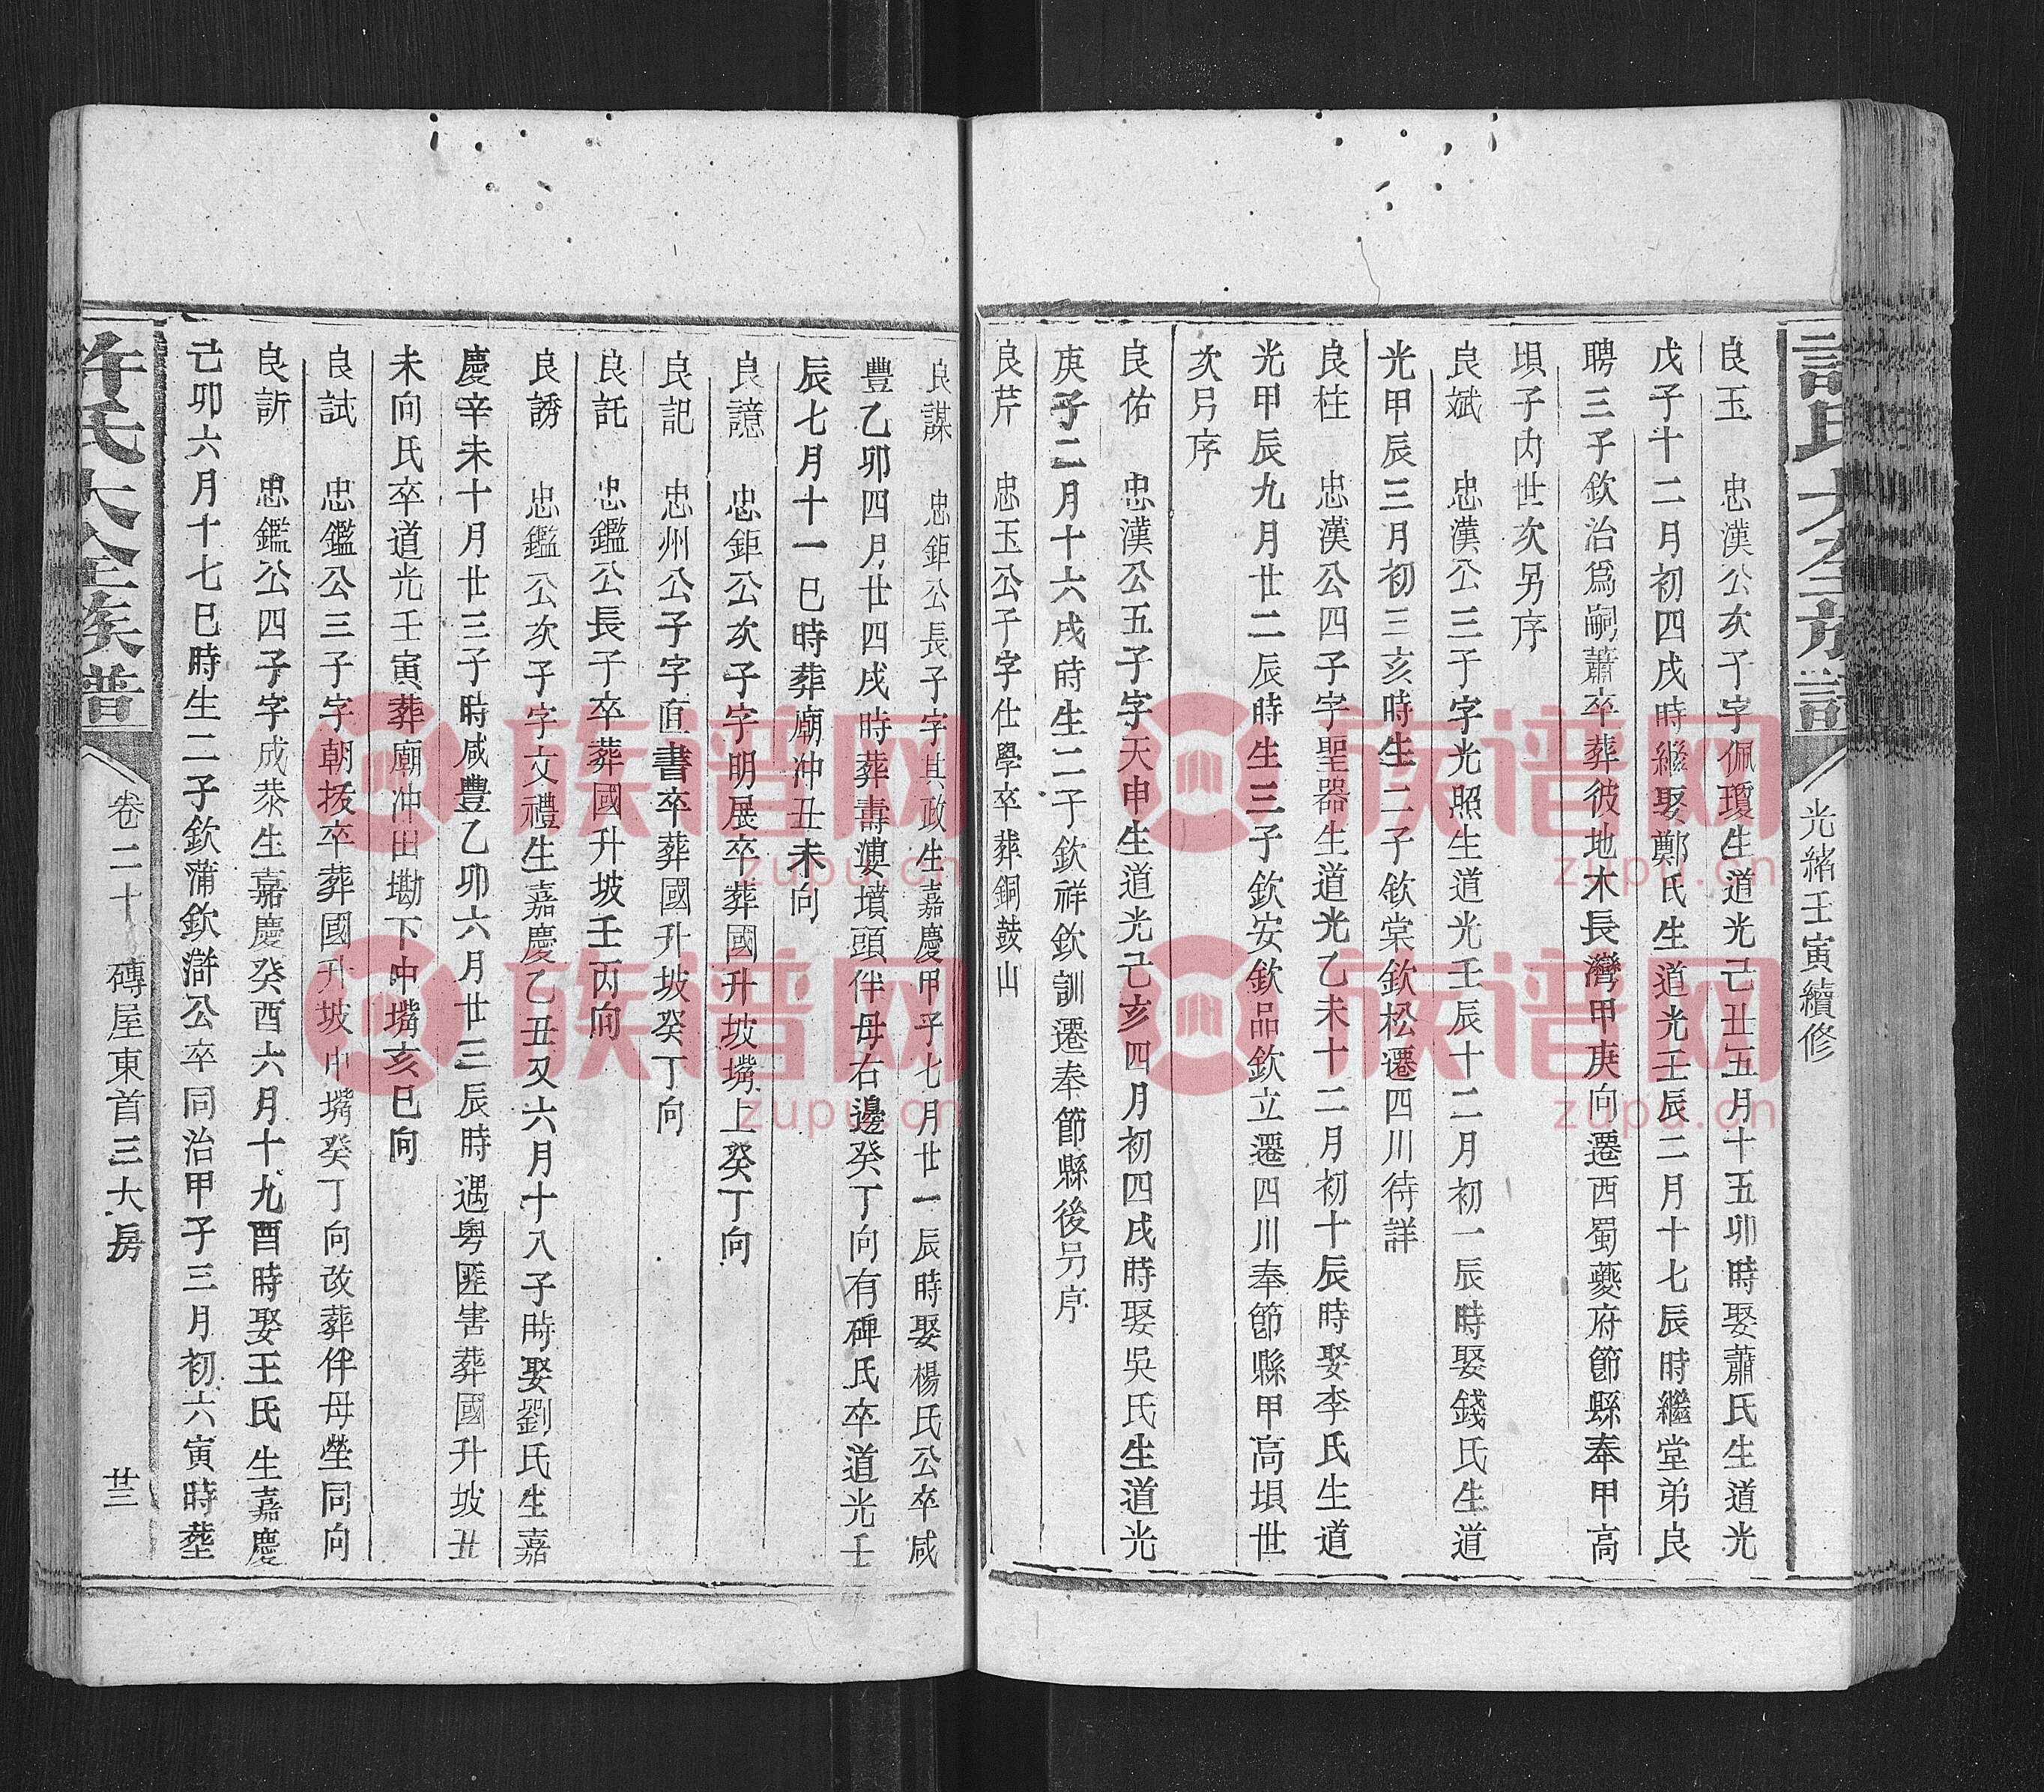 許氏大全族譜
光緒壬寅續修
良玉 忠漢公次子字佩瓊生道光己丑五月十五卯時娶蕭氏生道光
戊子十二月初四戌時繼娶鄭氏生道光壬辰二月十七辰時繼堂弟良
聘三子欽治爲嗣蕭卒葬彼地木長灣甲庚向遷西蜀夔府節縣奉甲高
垻子内世次另序
良斌 忠漢公三子字光照生道光壬辰十二月初一辰時娶錢氏生道
光甲辰三月初三亥時生二子欽棠欽松遷四川待詳
良柱 忠漢公四子字聖器生道光乙未十二月初十辰時娶李氏生道
光甲辰九月廿二辰時生三子欽安欽品欽立遷四川奉節縣甲高垻世
次另序
良佑 忠漢公五子字天申生道光己亥四月初四戌時娶吳氏生道光
庚子二月十六戌時生二子欽祥欽訓遷奉節縣後另序
良芹 忠玉公子字仕學卒葬銅鼓山
良謀 忠鉅公長子字其政生嘉慶甲子七月廿一辰時娶楊氏公卒咸
豐乙卯四月廿四戌時葬壽塽墳頭伴母右邊癸丁向有碑氏卒道光壬
辰七月十一巳時葬廟沖丑未向
良譩 忠鉅公次子字明展卒葬國升坡嘴上癸丁向
良記 忠州公子字直書卒葬國升坡癸丁向
良託 忠鑑公長子卒葬國升坡壬丙向
良誘 忠鑑公次子字文禮生嘉慶乙丑又六月十八子時娶劉氏生嘉
慶辛未十月廿三子時咸豐乙卯六月廿三辰時遇粵匪害葬國升坡丑
未向氏卒道光壬寅葬廟沖田墈下中嘴亥巳向
良試 忠鑑公三子字朝拔卒葬國升坡中嘴癸丁向改葬伴母塋同向
良訢 忠鑑公四子字成㳟生嘉慶癸酉六月十九酉時娶王氏生嘉慶
己卯六月十七巳時生二子欽蒲欽滸公卒同治甲子三月初六寅時塟
許氏大全族譜
卷二十 磚屋東首三大房 廿三
族谱网
zupu.cn
族谱网
zupu.cn
族谱网
zupu.cn
族谱网
zupu.cn